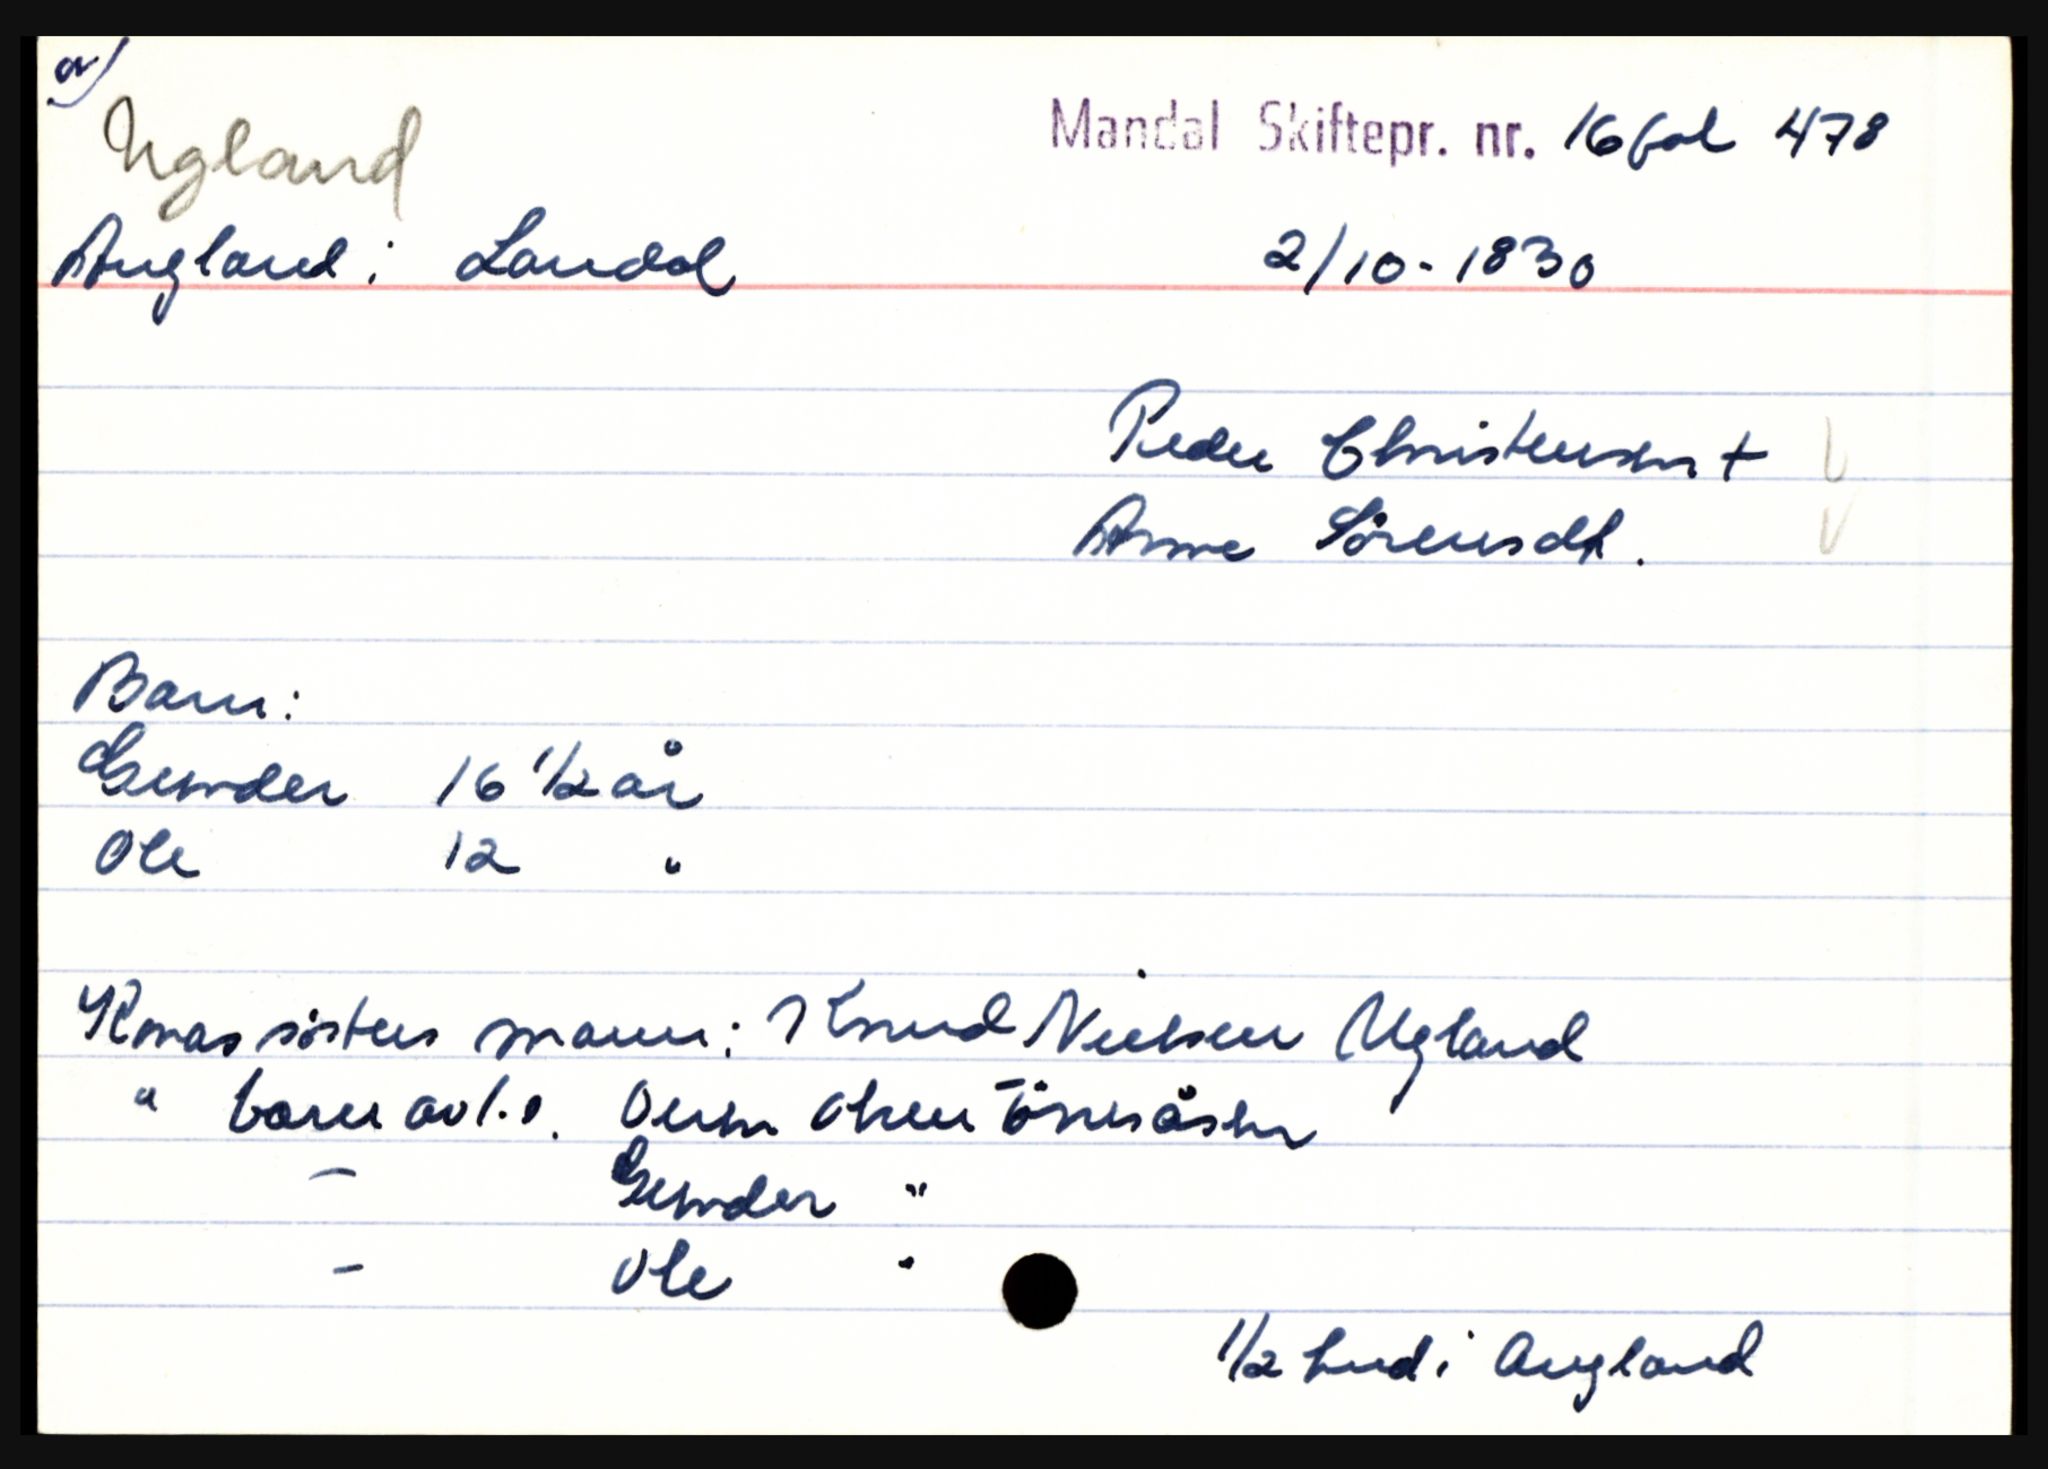 a)
Ugland
Mandal Skiftepr. nr. 16 fol 478
Augland i Laudal 2/10-1830
Peder Christensen +
Anne Sörensdt.
Barn:
Gunder 16 1/2 år
Ole 12 "
Konas søsters mann: Knud Nielsen Ugland
" barn av 1. Ole Olsen
- Gunder "
- Ole "
1/2 hud i Augland